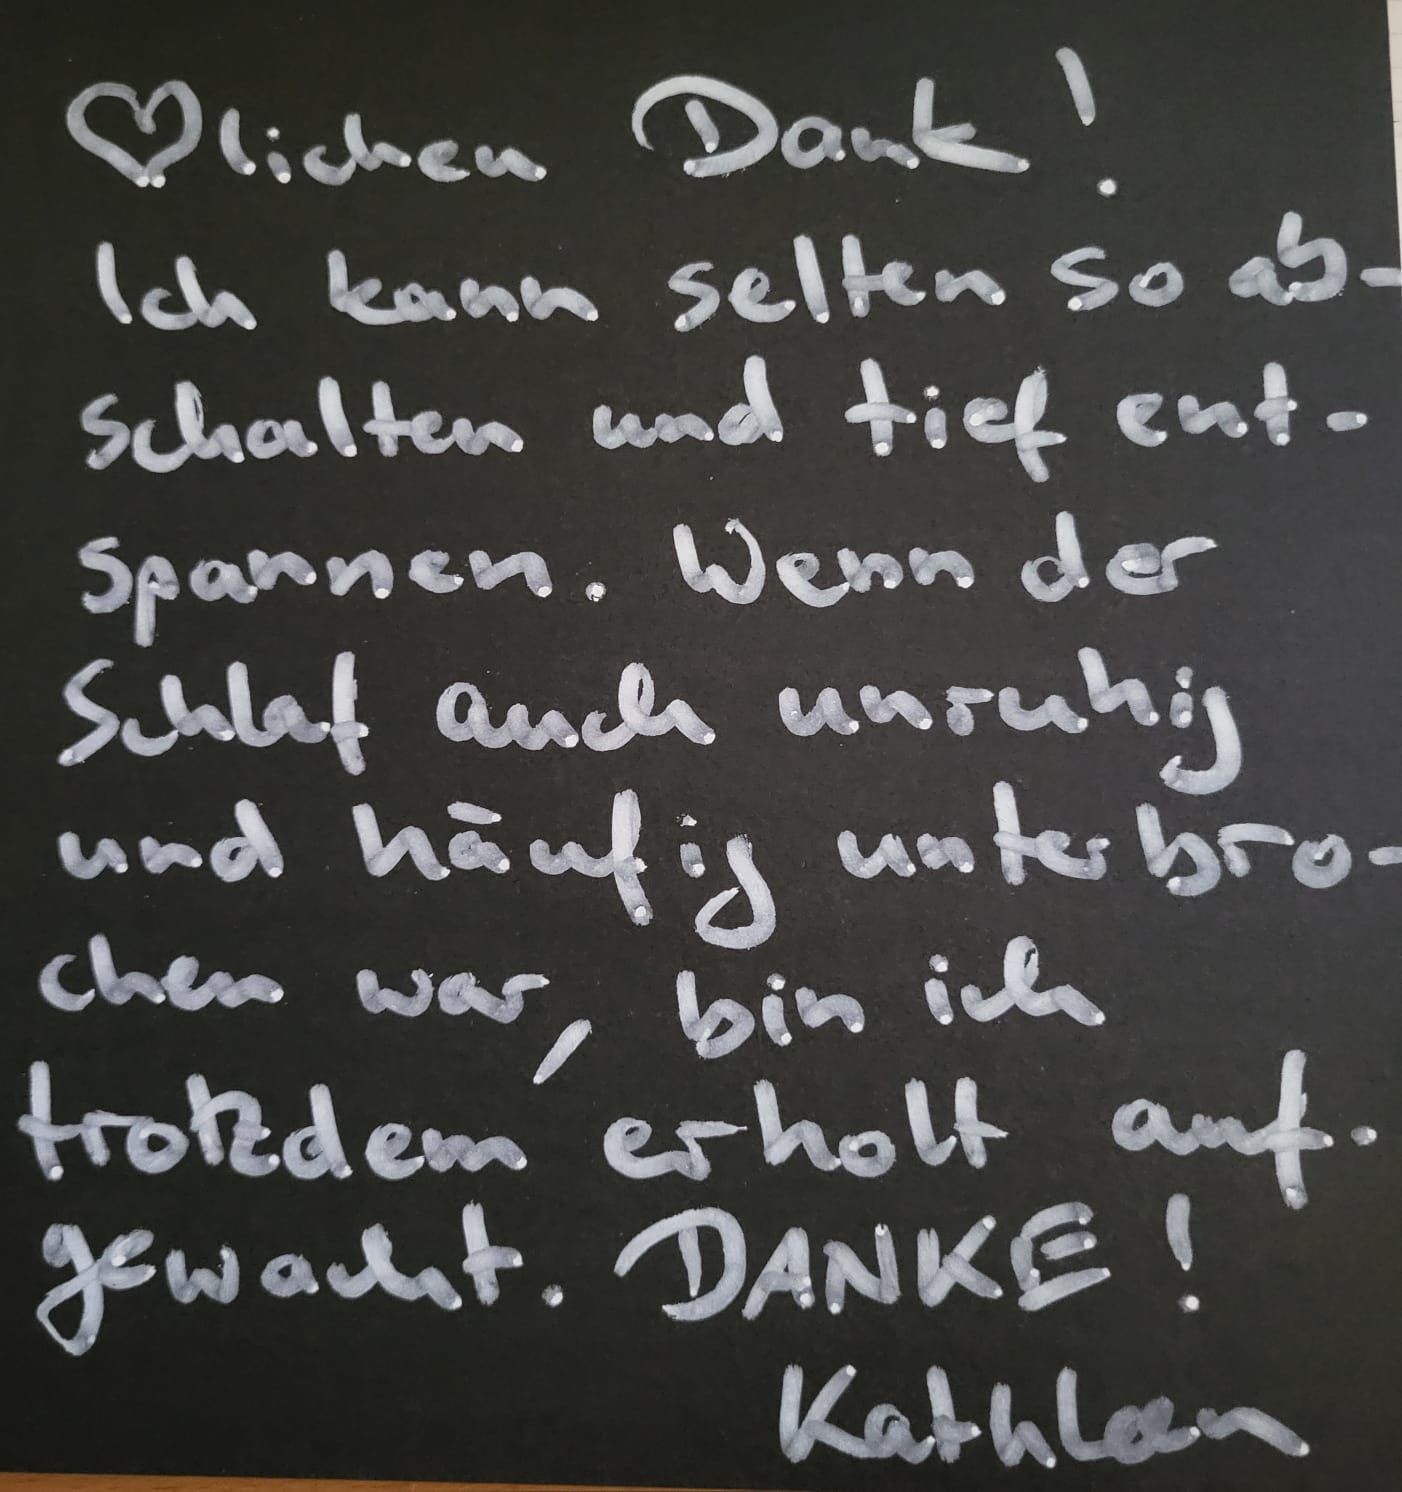 ♡lichen Dank!
Ich kann selten so ab-
schalten und tief ent-
spannen. Wenn der
Schlaf auch unruhig
und häufig unterbro-
chen war, bin ich
trotzdem erholt auf-
gewacht. DANKE!
Kathleen